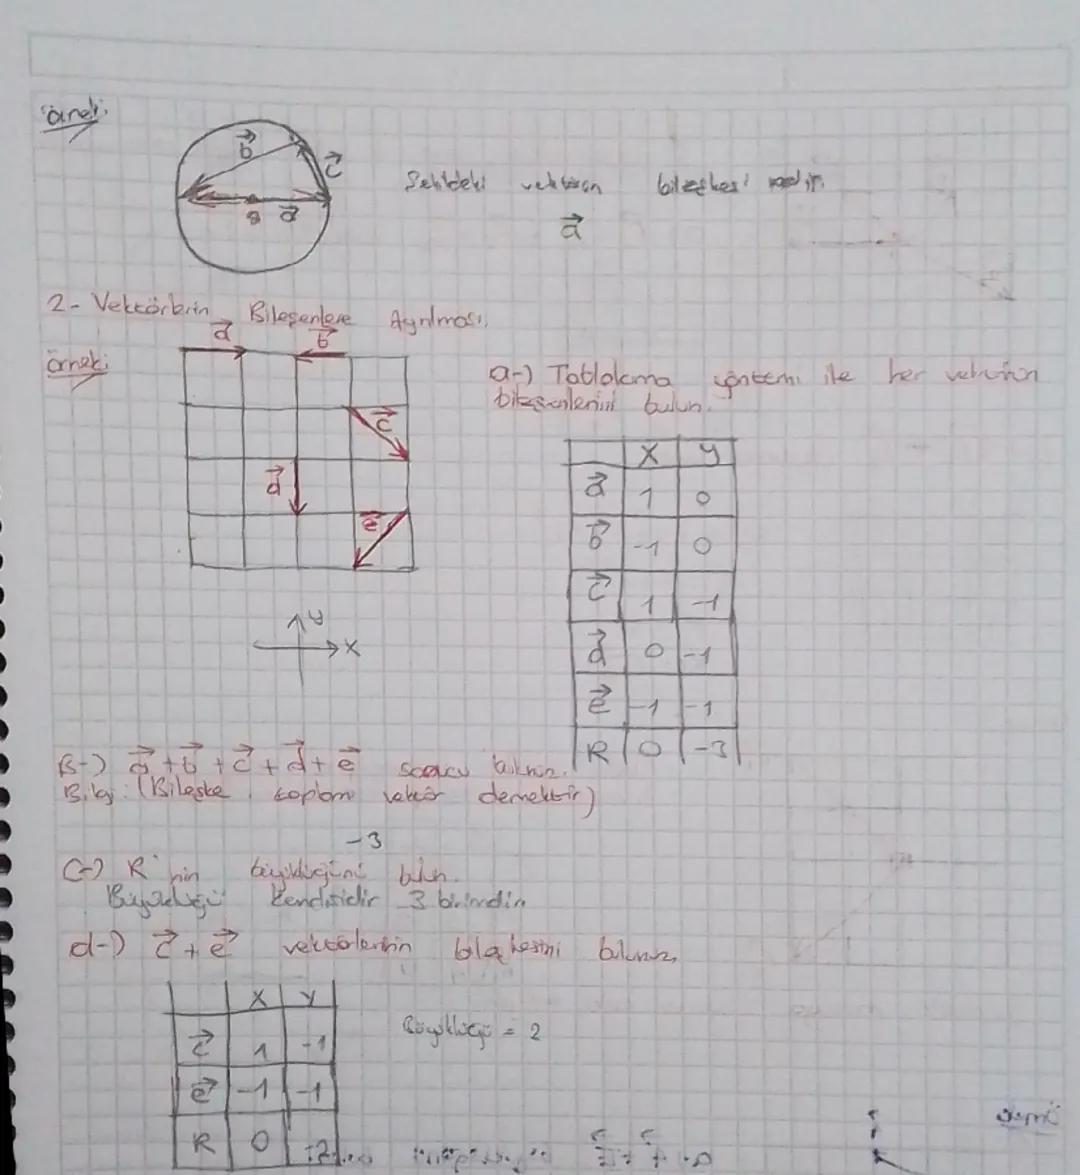 örnek:
b⃗
c⃗
a⃗
Şekildeki vektörün bileşkesi nedir.
a⃗
2- Vektörlerin Bileşenlere Ayrılması,
a⃗ b⃗
örnek:
a-) Tablolama yöntemi ile her vektörün
bileşenlerini bulun.
c⃗
d⃗
e⃗
X Y
a⃗ 1 0
b⃗ -1 0
c⃗ 1 -1
d⃗ 0 -1
e⃗ -1 -1
R 0 -3
y
x
B-) a⃗ + b⃗ + c⃗ + d⃗ + e⃗
Bilgi: (Bileşke, toplam vektör demektir)
-3
C-) R'nin büyüklüğünü bulun.
Büyüklüğü kendisidir 3 birimdir
d-) c⃗ + e⃗ vektörlerinin bileşkesini bulunuz,
X Y
c⃗ 1 -1
e⃗ -1 -1
R 0
Büyüklüğü = 2